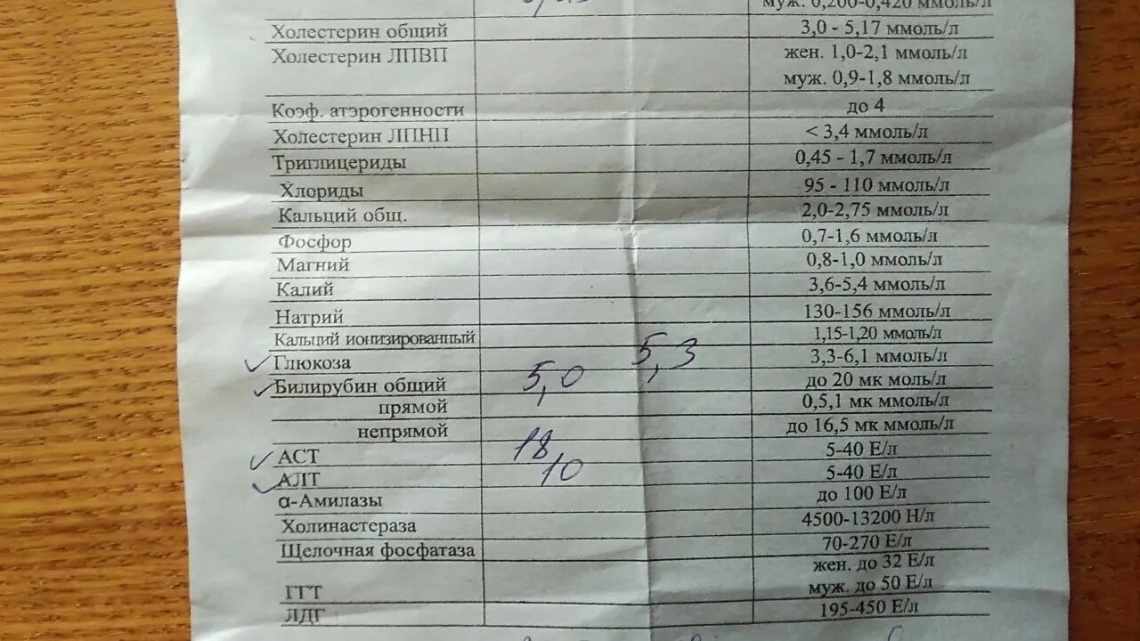 муж. 0,200-0,420 ммоль/л
Холестерин общий 3,0 - 5,17 ммоль/л
Холестерин ЛПВП жен. 1,0-2,1 ммоль/л
муж. 0,9-1,8 ммоль/л
Коэф. атэрогенности до 4
Холестерин ЛПНП < 3,4 ммоль/л
Триглицериды 0,45 - 1,7 ммоль/л
Хлориды 95 - 110 ммоль/л
Кальций общ. 2,0-2,75 ммоль/л
Фосфор 0,7-1,6 ммоль/л
Магний 0,8-1,0 ммоль/л
Калий 3,6-5,4 ммоль/л
Натрий 130-156 ммоль/л
Кальций ионизированный 1,15-1,20 ммоль/л
Глюкоза 5,3 3,3-6,1 ммоль/л
Билирубин общий 5,0 до 20 мк моль/л
прямой 0,5,1 мк ммоль/л
непрямой до 16,5 мк ммоль/л
АСТ 18 5-40 Е/л
АЛТ 10 5-40 Е/л
α-Амилазы до 100 Е/л
Холинастераза 4500-13200 Н/л
Щелочная фосфатаза 70-270 Е/л
жен. до 32 Е/л
ГГТ муж. до 50 Е/л
ЛДГ 195-450 Е/л